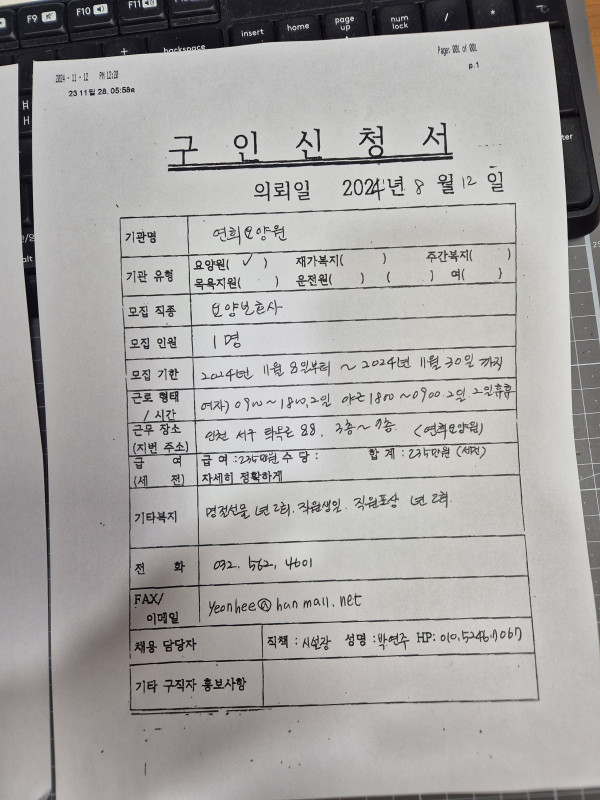 F9
F10
F11
insert
home
page up
num lock
/
*
backspace
enter
alt
2024 - 11 - 12 PM 12:28
Page: 001 of 001
23 11월 28. 05:58a
p.1
구 인 신 청 서
의뢰일 2024년 8 월 12 일
기관명 연희요양원
기관 유형 요양원( ✓ ) 재가복지( ) 주간복지( )
목욕지원( ) 운전원( ) ( ) 여( )
모집 직종 요양보호사
모집 인원 1명
모집 기한 2024년 11월 8일부터 ~ 2024년 11월 30일 까지
근로 형태 / 시간 여자) 0900~1800, 2일 야근 1800~0900. 2일. 2일휴휴
근무 장소 (지번 주소) 인천 서구 탁옥로 88, 3층~7층. (연희요양원)
급 여 (세 전) 급 여 :235만원 수 당 : 합 계 : 235만원 (세전)
자세히 정확하게
기타복지 명절선물 년 2회. 직원생일. 직원포상 년 2회.
전 화 032. 562. 4601
FAX/ 이메일 yeonhee@hanmail.net
채용 담당자 직책 : 시설장 성명 : 박연주 HP: 010.5246.7067
기타 구직자 홍보사항